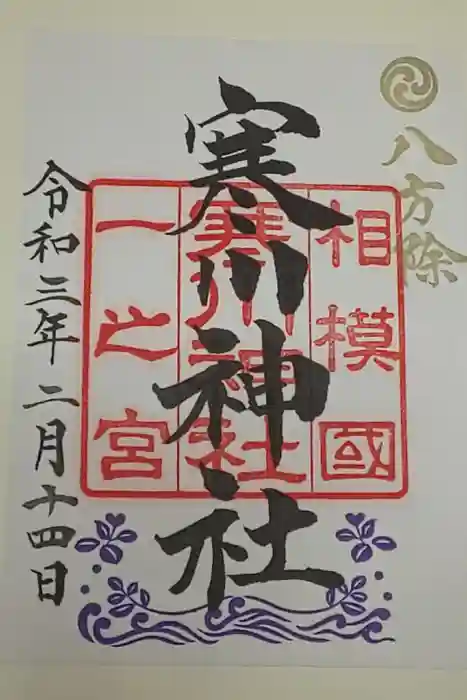 八方除
相模國
寒川神社
一之宮
寒川神社
令和三年二月十四日